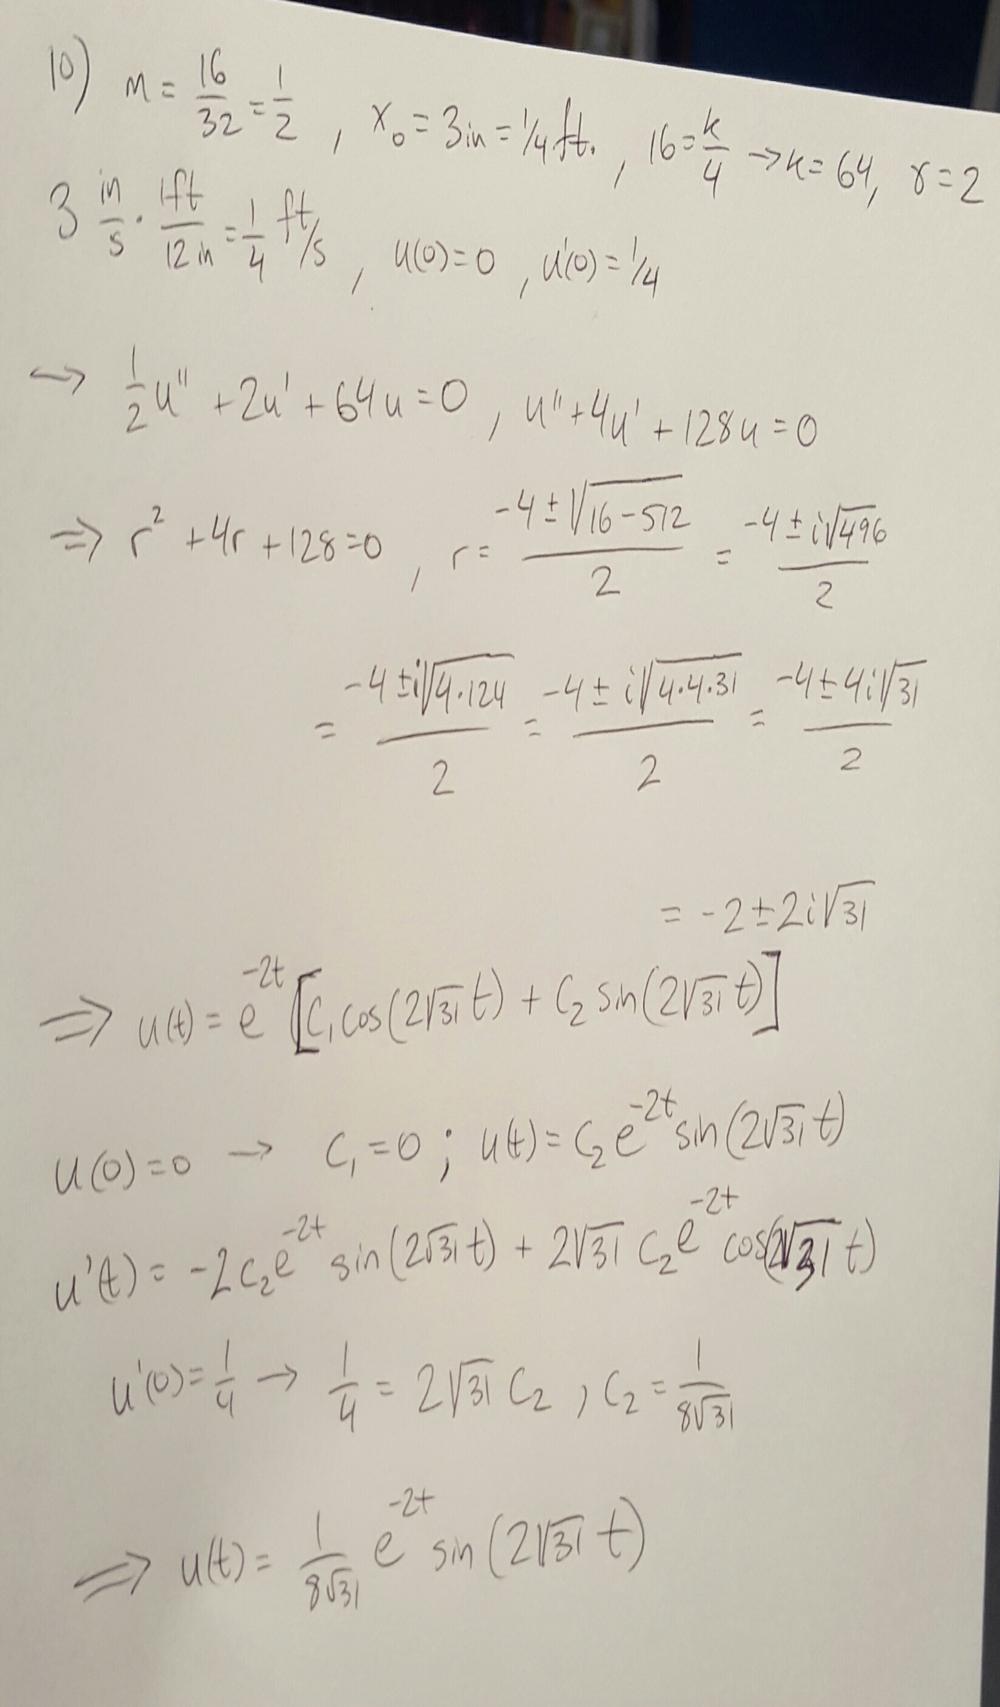 10) m = 16/32 = 1/2 , x₀ = 3in = 1/4 ft. , 16 = k/4 → k = 64, γ = 2
3 in/s · 1ft/12in = 1/4 ft/s , u(0) = 0 , u'(0) = 1/4
→ 1/2 u'' + 2u' + 64u = 0 , u'' + 4u' + 128u = 0
⇒ r² + 4r + 128 = 0 , r = (-4 ± √(16-512))/2 = (-4 ± i√496)/2
= (-4 ± i√(4·124))/2 = (-4 ± i√(4·4·31))/2 = (-4 ± 4i√31)/2
= -2 ± 2i√31
⇒ u(t) = e^(-2t) [C₁cos(2√31 t) + C₂ sin(2√31 t)]
u(0) = 0 → C₁ = 0 ; u(t) = C₂e^(-2t) sin(2√31 t)
u'(t) = -2C₂e^(-2t) sin(2√31 t) + 2√31 C₂e^(-2t) cos(2√31 t)
u'(0) = 1/4 → 1/4 = 2√31 C₂ , C₂ = 1/(8√31)
⇒ u(t) = 1/(8√31) e^(-2t) sin(2√31 t)